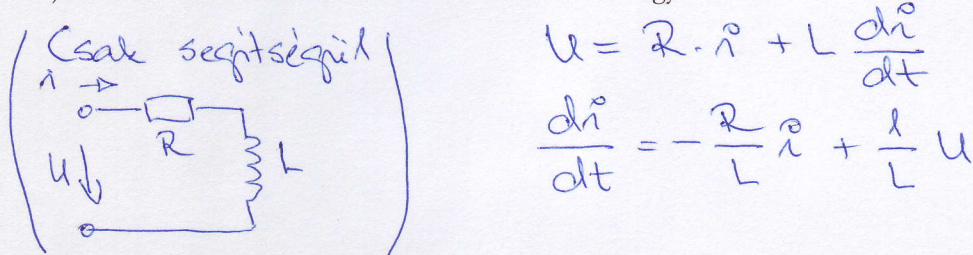 (Csak segítségül)
i
R
U
L
U = R · i + L di/dt
di/dt = - R/L i + 1/L U